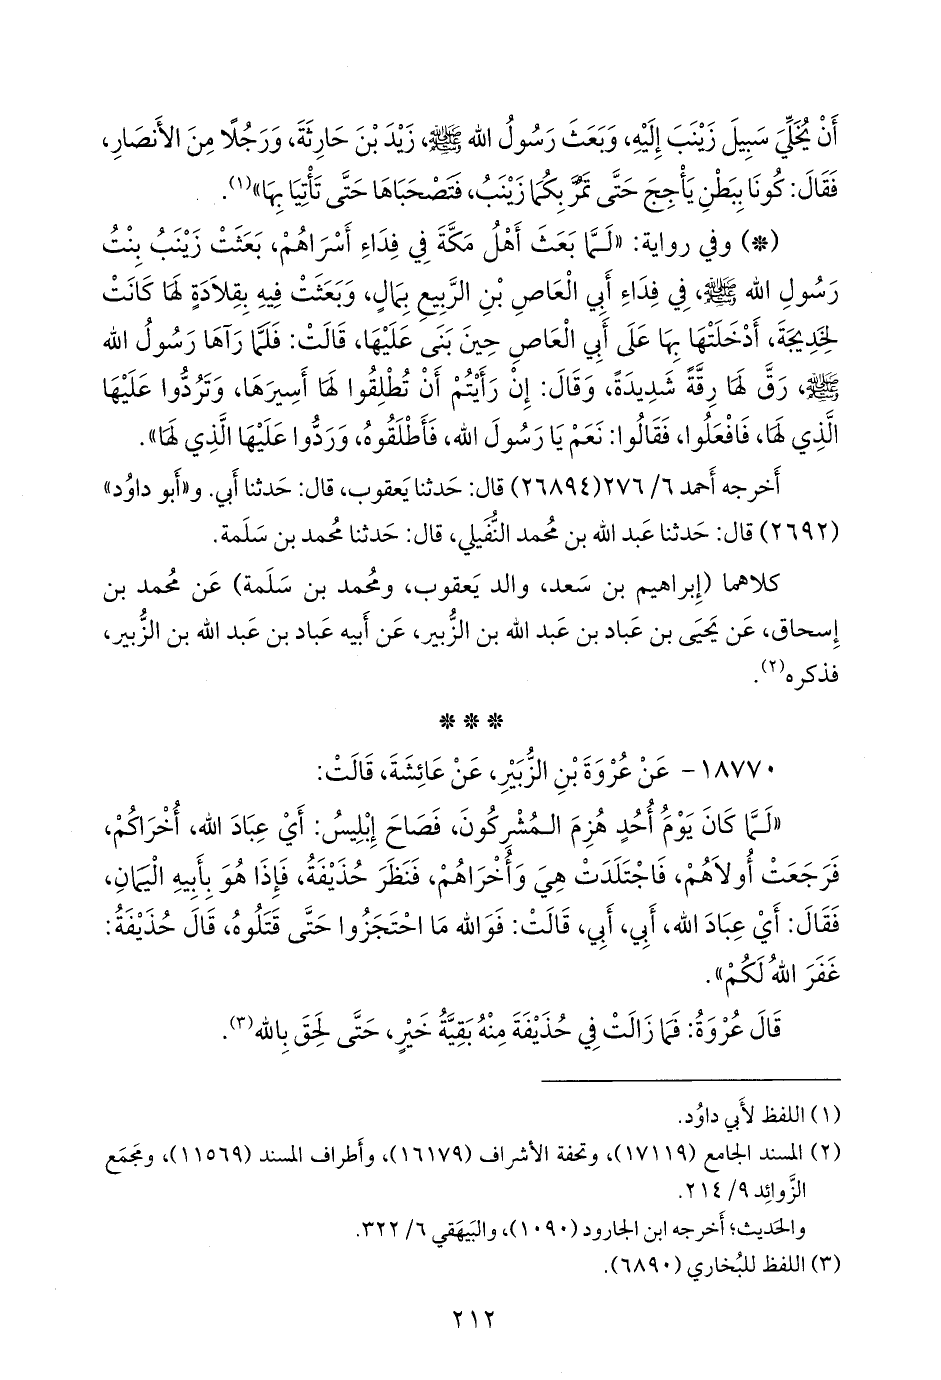 أَنْ يُخَلِّيَ سَبِيلَ زَيْنَبَ إِلَيْهِ، وَبَعَثَ رَسُولُ الله ﷺ، زَيْدَ بْنَ حَارِثَةَ، وَرَجُلًا مِنَ الأَنْصَارِ،
فَقَالَ: كُونَا بِبَطْنِ يَأْجِجَ حَتَّى تَمُرَّ بِكُمَا زَيْنَبُ، فَتَصْحَبَاهَا حَتَّى تَأْتِيَا بِهَا»(١).
(*) وفي رواية: «لَـمَّا بَعَثَ أَهْلُ مَكَّةَ فِي فِدَاءِ أَسْرَاهُمْ، بَعَثَتْ زَيْنَبُ بِنْتُ
رَسُولِ الله ﷺ، فِي فِدَاءِ أَبِي الْعَاصِ بْنِ الرَّبِيعِ بِمَالٍ، وَبَعَثَتْ فِيهِ بِقِلَادَةٍ لَهَا كَانَتْ
لِخَدِيجَةَ، أَدْخَلَتْهَا بِهَا عَلَى أَبِي الْعَاصِ حِينَ بَنَى عَلَيْهَا، قَالَتْ: فَلَمَّا رَآهَا رَسُولُ الله
ﷺ، رَقَّ لَهَا رِقَّةً شَدِيدَةً، وَقَالَ: إِنْ رَأَيْتُمْ أَنْ تُطْلِقُوا لَهَا أَسِيرَهَا، وَتَرُدُّوا عَلَيْهَا
الَّذِي لَهَا، فَافْعَلُوا، فَقَالُوا: نَعَمْ يَا رَسُولَ الله، فَأَطْلَقُوهُ، وَرَدُّوا عَلَيْهَا الَّذِي لَهَا».
أَخرجه أَحمد ٦/ ٢٧٦(٢٦٨٩٤) قال: حَدثنا يَعقوب، قال: حَدثنا أَبي. و«أَبو داوُد»
(٢٦٩٢) قال: حَدثنا عَبد الله بن مُحمد النُّفَيلي، قال: حَدثنا مُحمد بن سَلَمة.
كلاهما (إِبراهيم بن سَعد، والد يَعقوب، ومُحمد بن سَلَمة) عَن مُحمد بن
إِسحاق، عَن يَحيَى بن عَباد بن عَبد الله بن الزُّبير، عَن أَبيه عَباد بن عَبد الله بن الزُّبير،
فذكره(٢).
* * *
١٨٧٧٠- عَنْ عُرْوَةَ بْنِ الزُّبَيْرِ، عَنْ عَائِشَةَ، قَالَتْ:
«لَـمَّا كَانَ يَوْمُ أُحُدٍ هُزِمَ الـمُشْرِكُونَ، فَصَاحَ إِبْلِيسُ: أَيْ عِبَادَ الله، أُخْرَاكُمْ،
فَرَجَعَتْ أُولَاهُمْ، فَاجْتَلَدَتْ هِيَ وَأُخْرَاهُمْ، فَنَظَرَ حُذَيْفَةُ، فَإِذَا هُوَ بِأَبِيهِ الْيَمَانِ،
فَقَالَ: أَيْ عِبَادَ الله، أَبِي، أَبِي، قَالَتْ: فَوَالله مَا احْتَجَزُوا حَتَّى قَتَلُوهُ، قَالَ حُذَيْفَةُ:
غَفَرَ اللهُ لَكُمْ».
قَالَ عُرْوَةُ: فَمَا زَالَتْ فِي حُذَيْفَةَ مِنْهُ بَقِيَّةُ خَيْرٍ، حَتَّى لَحِقَ بِالله(٣).
(١) اللفظ لأَبي داوُد.
(٢) المسند الجامع (١٧١١٩)، وتحفة الأشراف (١٦١٧٩)، وأَطراف المسند (١١٥٦٩)، ومَجمَع
الزَّوائِد ٩/ ٢١٤.
والحَديث؛ أَخرجه ابن الجارود (١٠٩٠)، والبَيهَقي ٦/ ٣٢٢.
(٣) اللفظ للبُخاري (٦٨٩٠).
٢١٢